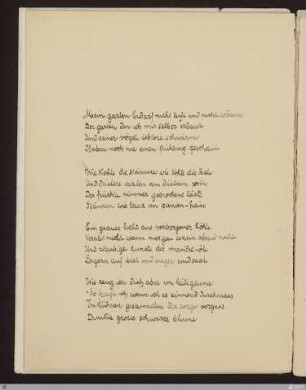 Mein garten bedarf nicht luft und nicht wärme
Der garten den ich mir selber erbaut
Und seiner vögel leblose schwärme
Haben noch nie einen frühling geschaut

Wie kohle die stämme wie kohle die äste
Und düstere felder am düsteren rain
Der früchte nimmer gebrochene läste
Glänzen wie lava im pinien-hain

Ein grauer licht aus verborgener höhle
Verrät nicht wann morgen wann abend naht
Und staubige dünste der mandel-öle
Lagern auf beet und anger und saat

Wie zeug ich dich aber im heiligtume
So fragt ich wenn ich es sinnend durchmass
In kühnen gespinsten der sorge vergass
Dunkle grosse schwarze blume